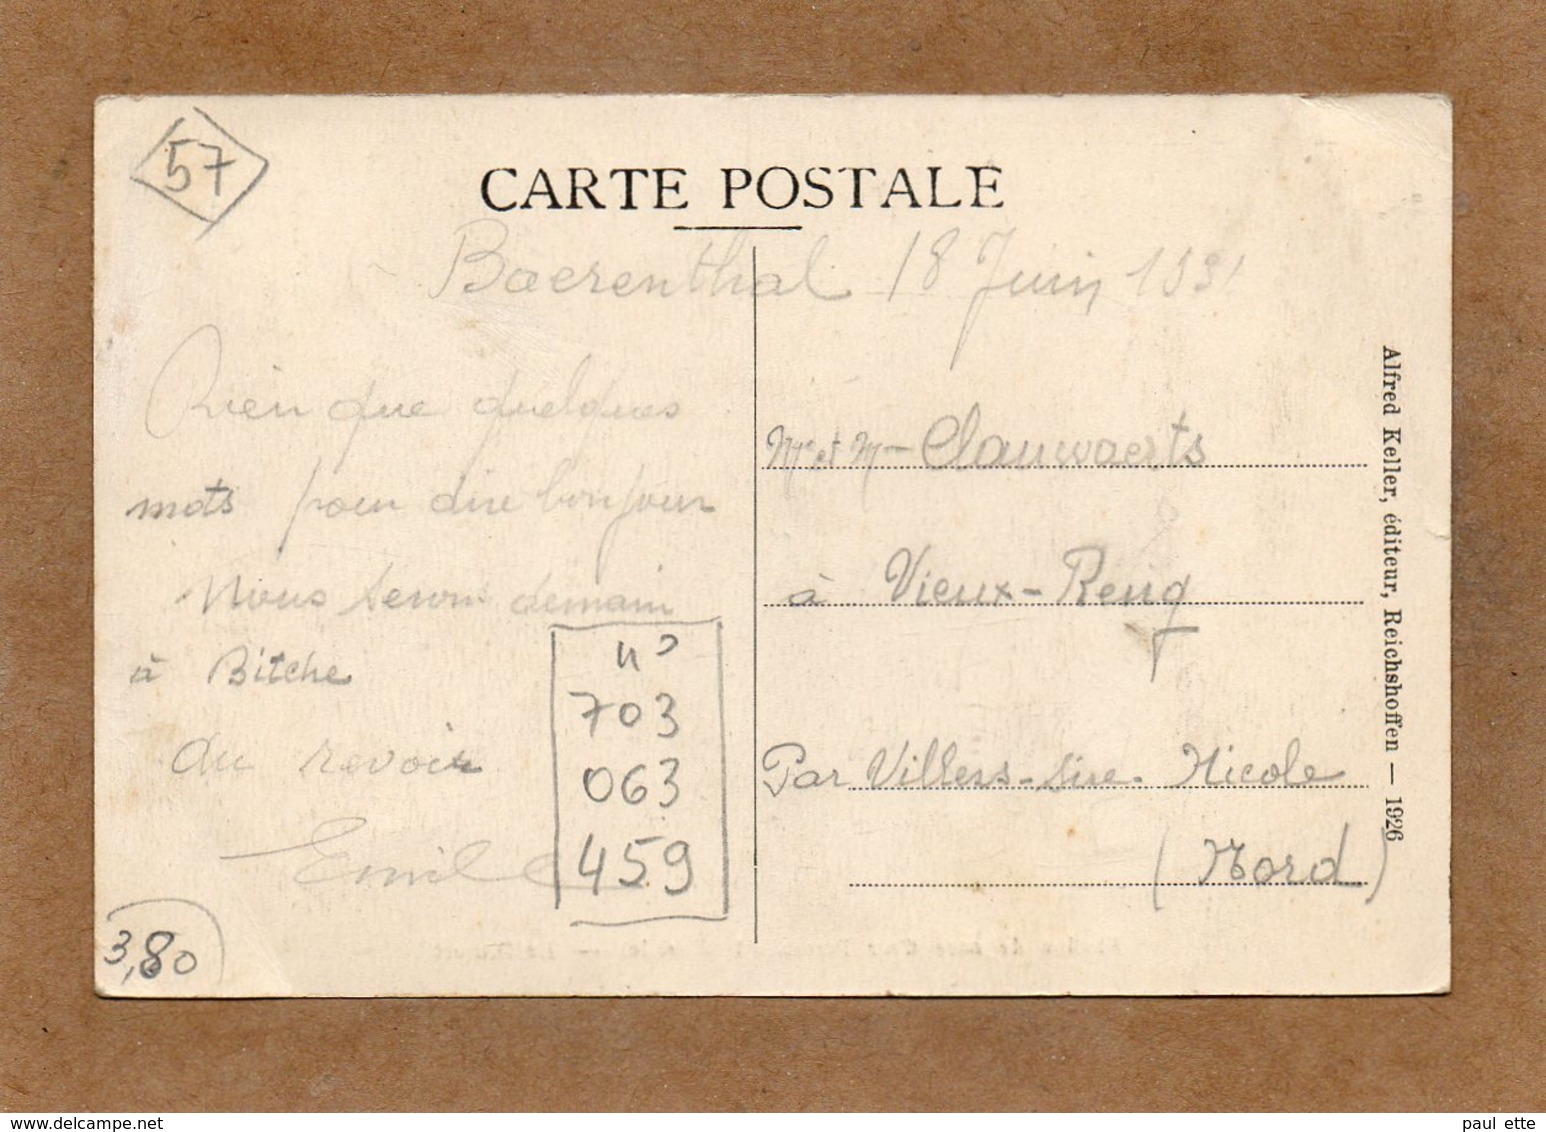 57
CARTE POSTALE
Baerenthal 18 Juin 1931
Rien que quelques
mots pour dire bonjour
Nous serons demain
à Bitche
au revoir
Emile
n°
703
063
459
3,80
Mr et Mme Clauwaerts
à Vieux-Reng
Par Villers-Sire-Nicole
(Nord)
Alfred Keller, éditeur, Reichshoffen — 1926
paul ette